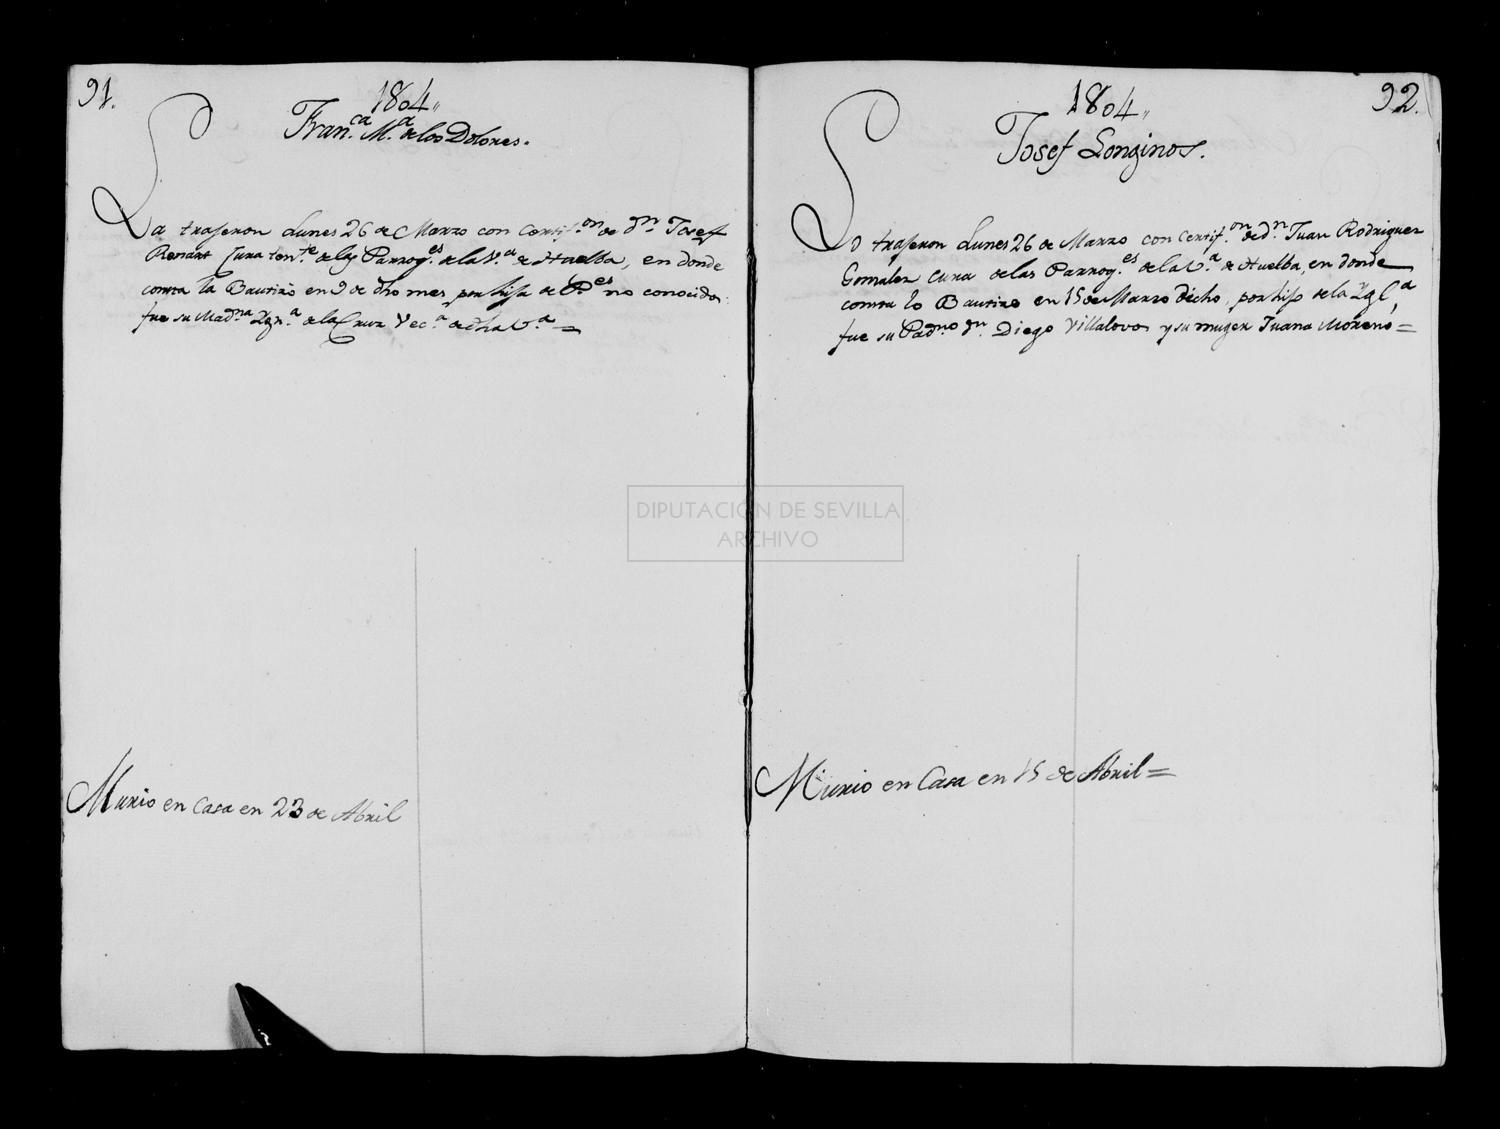 91.
1804„
Fran.ca M.a de los Dolores.
La trajeron Lunes 26 de Marzo con Certif.on de Dn. Josef
Renart Cura ten.te de las Parroq.es de la V.a de Huelba, en donde
consta la Bautizo en 9 de dho mes, por hija de P.es no conocidos
fue su Mad.na Ign.a de la Cruz Vec.a de dha V.a =
Murio en Casa en 23 de Abril
92.
1804„
Josef Longinos.
Lo trajeron Lunes 26 de Marzo con Certif.on de dn Juan Rodriguez
Gonzalez Cura de las Parroq.es de la V.a de Huelba, en donde
consta lo Bautizo en 15 de Marzo dicho, por hijo de la Ygl.a,
fue su Pad.no dn. Diego Villalovos y su muger Juana Moreno =
Murio en Casa en 15 de Abril =
DIPUTACIÓN DE SEVILLA
ARCHIVO